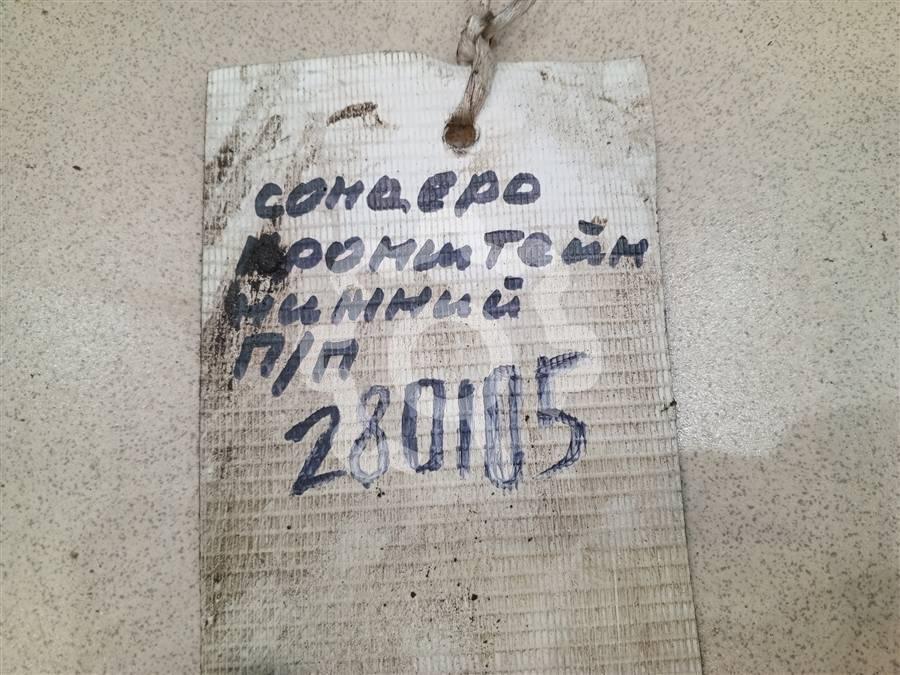 сондеро
кронштейн
нижний
п/п
280105